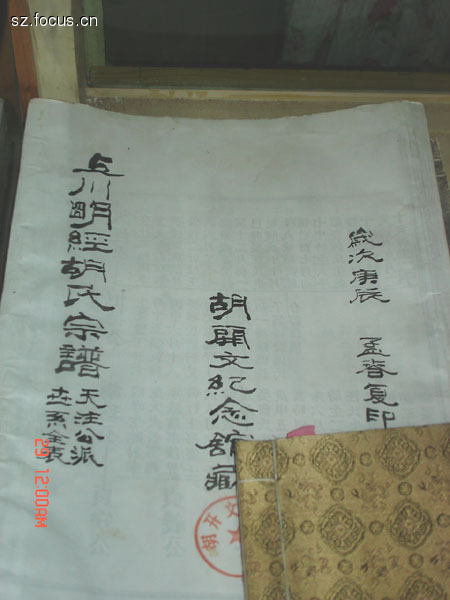 sz.focus.cn
歲次庚辰 孟春复印
胡開文紀念舘藏
上川明經胡氏宗譜
天注公派
世系全表
29 12:00AM